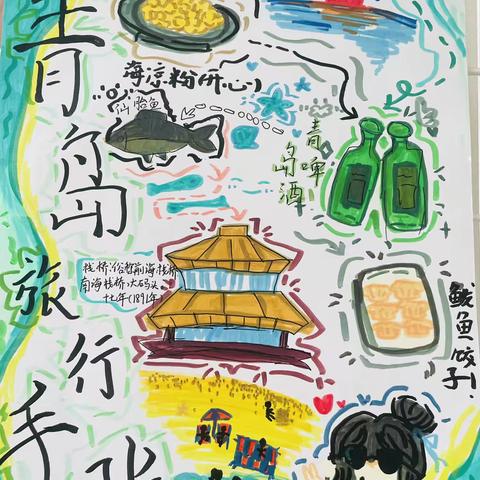 青岛旅行手
海凉粉(开心)
仙胎鱼
青岛啤酒
栈桥:俗称前海栈桥
南海栈桥、大码头
十七年(1891年)
鲅鱼饺子!